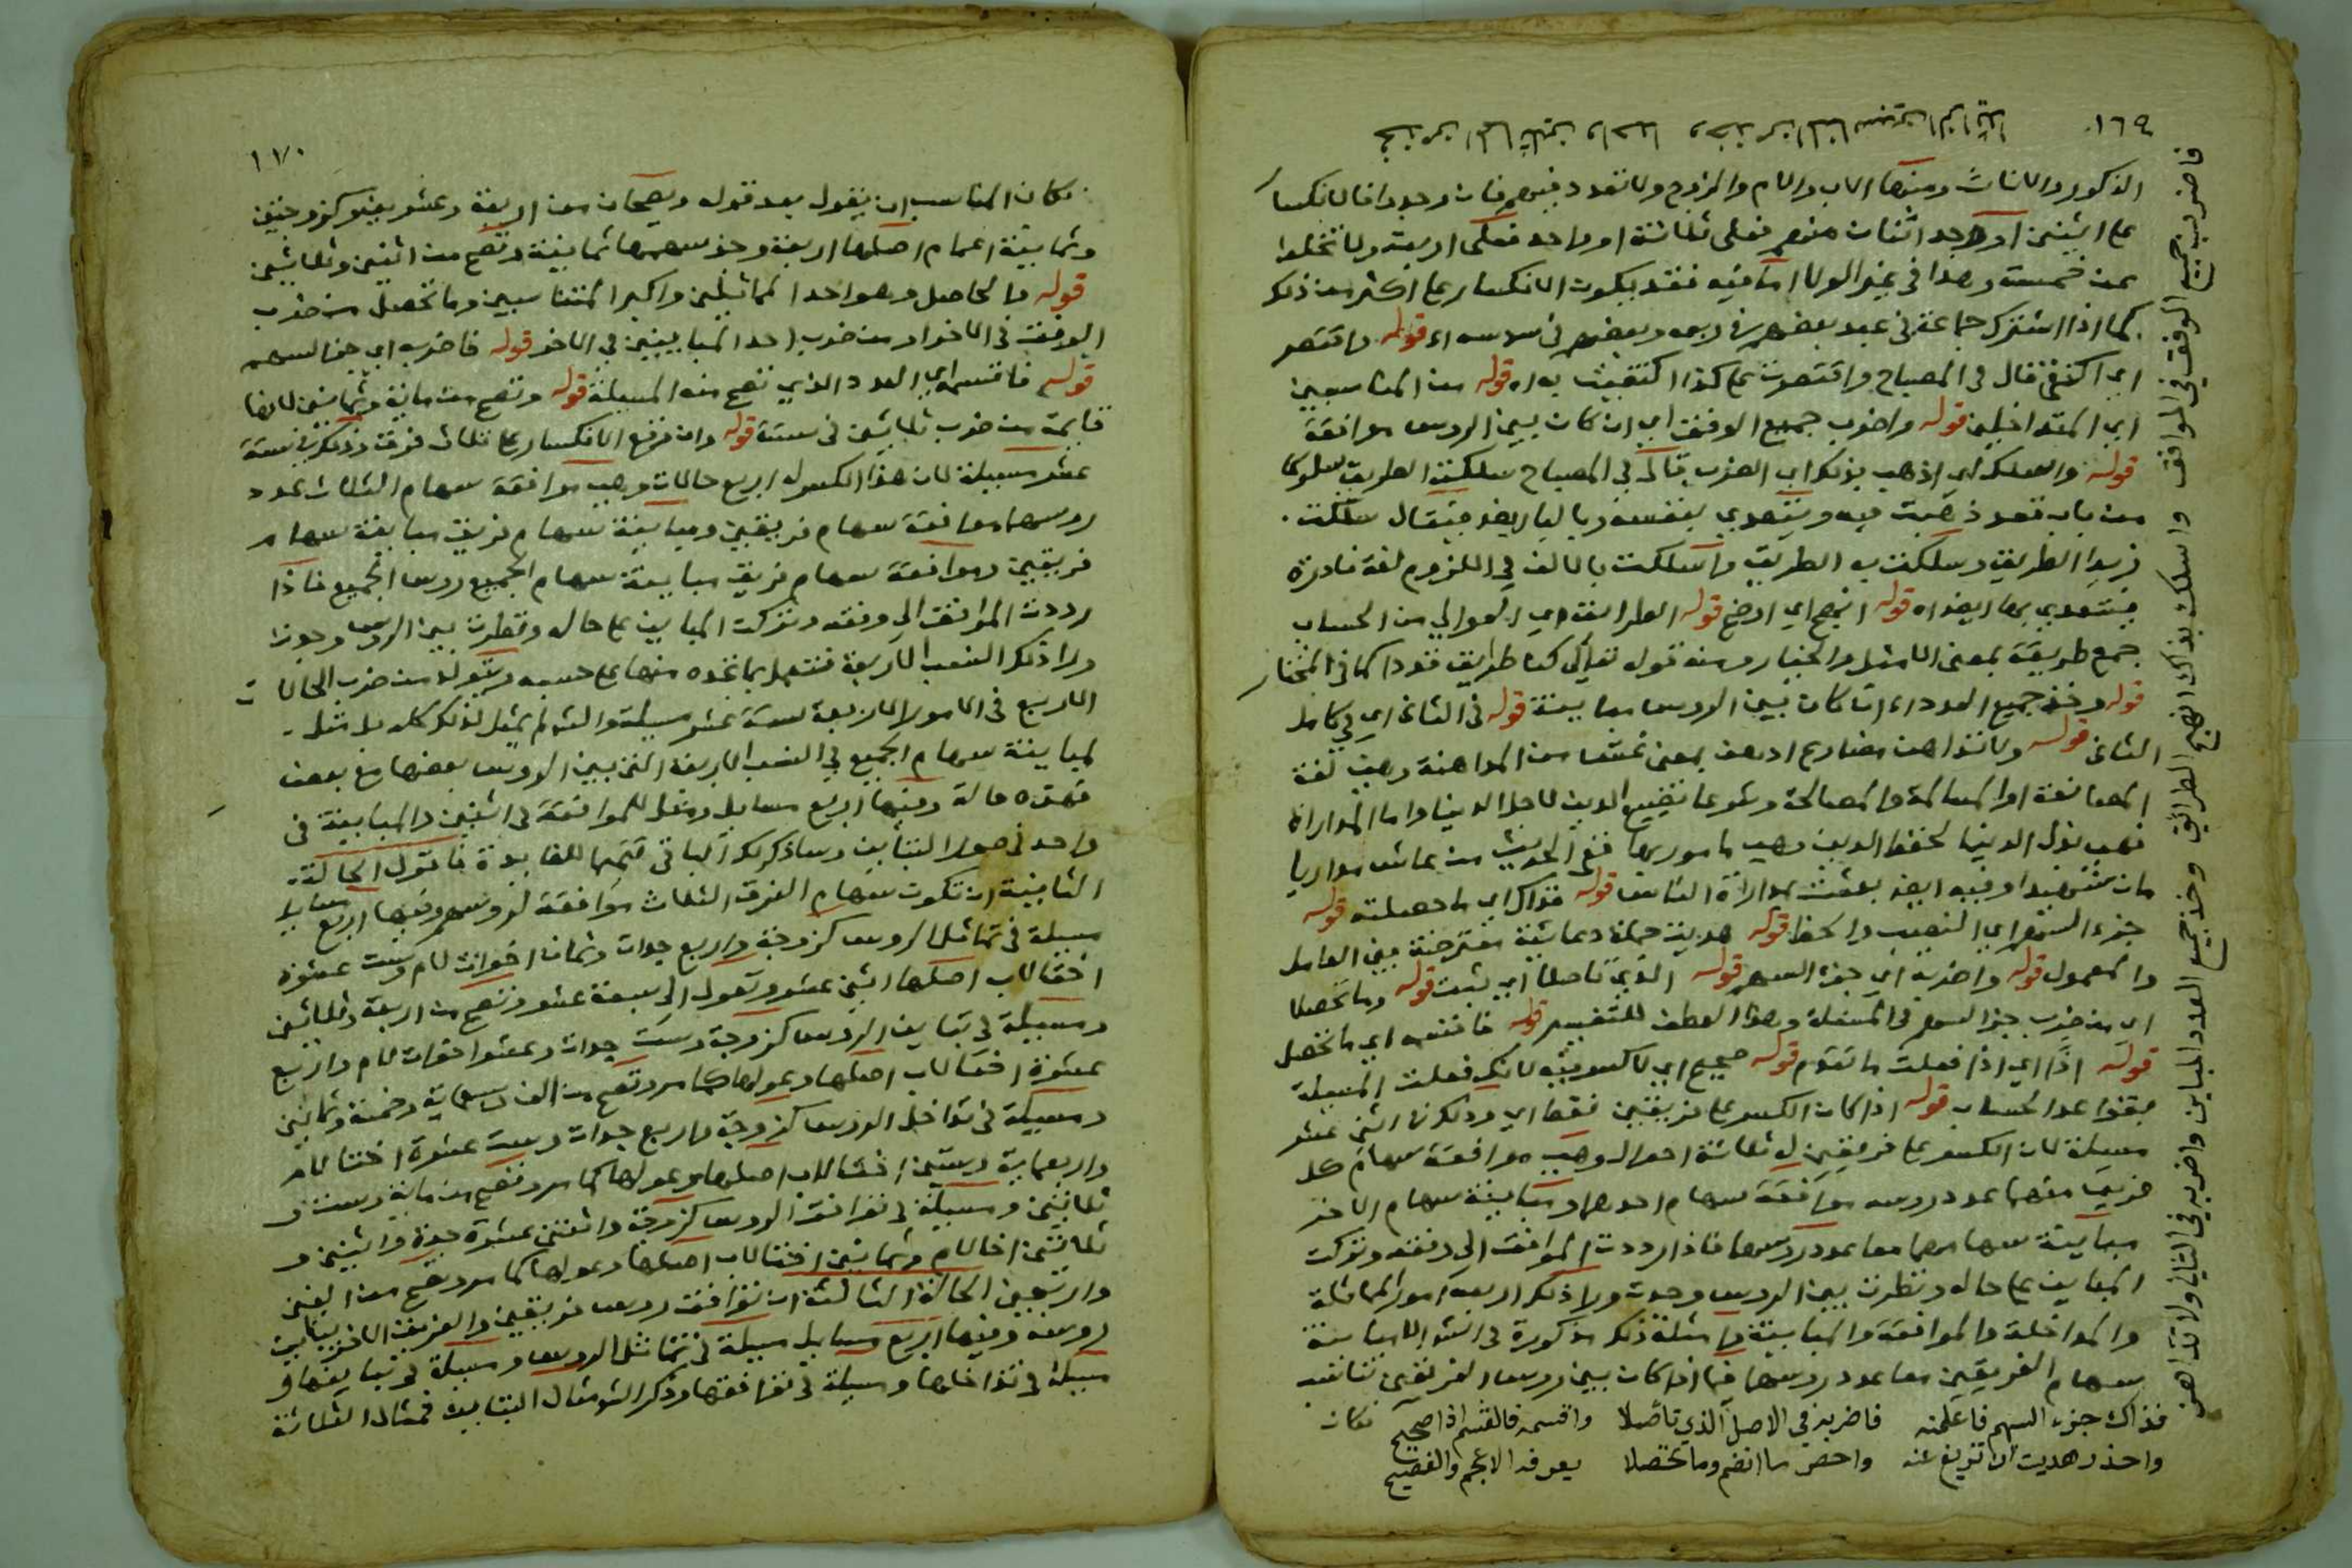 ١٦٩
الذكور والاناث ومنها الاب والام والزوج ولا تعدد فيهم فان وجد وافالانكسار
على اثنين او وجد اثنان منهم فعلى ثلاثة او واحد فعلى اربعة ولا تخلوا
عن خمسة وهذا في غير الولاء اما فيه فقد يكون الانكسار على اكثر من ذلك
كما اذا اشترك جماعة في عبد بعضهم في ربعه وبعضهم في سدسه اه قوله واقتصر
اي اكتفى قال في المصباح واقتصرت على كذا اكتفيت به اه قوله من المناسبين
اي المتداخلين قوله واضرب جميع الوفق اي ان كان بين الروس موافقة
قوله واسلك اي اذهب بذلك اي الضرب قال في المصباح سلكت الطريق سلوكا
من باب قعد ذهبت فيه ويتعدى بنفسه وبالباء ايضا فيقال سلكت
زيدا الطريق وسلكت به الطريق واسلكت بالالف في اللزوم لغة نادرة
فيتعدى بها ايضا اه قوله انهج اي اوضح قوله الطرائق اي الموالي من الحساب
جمع طريقة بمعنى الامثل والخيار ومنه قوله تعالى كنا طرائق قددا كما في المختار
قوله وخذ جميع العدد اه ان كان بين الروس مباينة قوله في الثاني اي في كامل
الثاني قوله ولا تداهن مضارع ادهن بمعنى غش من المداهنة وهي لغة
المصانعة او المسالمة والمصالحة وشرعا تضييع الدين لاجل الدنيا واما المداراة
فهي بذل الدنيا لحفظ الدين وهي مامور بها ففي الحديث من عاش مداريا
مات شهيدا وفيه ايضا بعثت بمداراة الناس قوله فذاك اي ما حصلته قوله
جزء السهم اي النصيب والحظ قوله هديت جملة دعائية معترضة بين العامل
والمعمول قوله واضربه اي جزء السهم قوله الذي تاصلا اي ثبت قوله وما تحصلا
اي من ضرب جزء السهم في المسئلة وهذا العطف للتفسير قوله فاقسمه اي ما تحصل
قوله اذا اي اذا فعلت ما تقدم قوله صحيح اي لا كسر فيه لانك فعلت المسئلة
بقواعد الحساب قوله اذا كان الكسر على فريقين فقط اي وذلك في اثني عشر
مسئلة لان الكسر على فريقين له ثلاثة احوال وهي موافقة سهام كل
فريق منهما عدد روسه موافقة سهام احدهما ومباينة سهام الاخر
مباينة سهامهما معا عدد روسهما فاذا رددت الموافق الى وفقه وتركت
المباين على حاله ونظرت بين الروس وجدت ولا ذلك اربعة امور المماثلة
والمداخلة والموافقة والمباينة وامثلة ذلك مذكورة في الشرح الا مباينة
سهام الفريقين معا عدد روسهما فيما اذا كان بين روس الفريقين تناسب
فكان
فاضرب جميع الوفق في الموافق واسلك بذاك انهج الطرائق وخذ جميع العدد المباين واضربه في الثاني ولا تداهن
فذاك جزء السهم فاعلمنه فاضربه في الاصل الذي تأصلا واقسمه فالقسم اذا صحيح
واحذر هديت ان تزيغ عنه واحص ما انضم وما تحصلا يعرفه الاعجم والفصيح
١٧٠
فكان المناسب ان يقول بعد قوله ويصحان من اربعة وعشرين وكزوجتين
وثمانية اعمام اصلها اربعة وجزء سهمها ثمانية وتصح من اثنين وثلاثين
قوله فالحاصل وهو احد المماثلين واكبر المتناسبين وما تحصل من ضرب
الوفق في الاخر او من ضرب احد المباينين في الاخر قوله فاضربه اي جزء السهم
قوله فاقسمه اي العدد الذي تصح منه المسئلة قوله وتصح من مائة وثمانين لانها
قائمة من ضرب ثلاثين في ستة قوله وان وقع الانكسار على ثلاث فرق وذلك في ستة
عشر مسئلة لان هذا الكسر له اربع حالات وهي موافقة سهام الثلاث عدد
روسها موافقة سهام فريقين ومباينة سهام فريق مباينة سهام
فريقين وموافقة سهام فريق مباينة سهام الجميع روس الجميع فاذا
رددت الموافق الى وفقه وتركت المباين على حاله ونظرت بين الروس وجدت
ولا ذلك النسب الاربعة فتعمل بما تجده منها على حسبه ويتولد من ضرب الحالات
الاربع في الامور الاربعة ستة عشر مسئلة والش لم يمثل لذلك كله بل مثل
لمباينة سهام الجميع في النسب الاربعة التي بين الروس بعضها مع بعض
فهذه حالة وفيها اربع مسايل ومثل للموافقة في اثنين والمباينة في
واحد في صورة التباين وساذكر لك الباقي تتميما للفايدة فاقول الحالة
الثانية ان تكون سهام الفرق الثلاث موافقة لروسهم وفيها اربع مسايل
مسئلة في تماثل الروس كزوجة واربع جدات وثمان اخوات لام وست عشرة
اختا لاب اصلها اثنى عشر وتعول الى سبعة عشر وتصح من اربعة وثلاثين
ومسئلة في تباين الروس كزوجة وست جدات وعشر اخوات لام واربع
عشرة اختا لاب اصلها وعولها كما مر وتصح من الف وسبعماية وخمسة وثمانين
ومسئلة في تداخل الروس كزوجة واربع جدات وست عشرة اختا لام
واربعماية وستين اختا لاب اصلها وعولها كما مر وتصح من ماية وست و
ثلاثين ومسئلة في توافق الروس كزوجة واثنتي عشرة جدة واثنين و
ثلاثين اخا لام وثمانين اختا لاب اصلها وعولها كما مر وتصح من الفين
واربعين الحالة الثالثة ان توافق روس فريقين والفريق الاخر يباين
روسه وفيها اربع مسايل مسئلة في تماثل الروس ومسئلة في تباينها و
مسئلة في تداخلها ومسئلة في توافقها وذكر الش مثال التباين فمثال الثلاثة